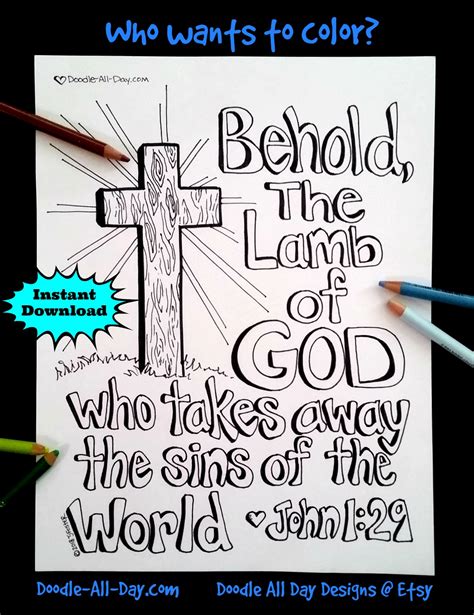 Who wants to color?
♡ Doodle-All-Day.com
Behold,
The
Lamb
of
GOD
Instant
Download
who takes away
the sins of the
World ♡ John 1:29
Doodle-All-Day.com Doodle All Day Designs @ Etsy